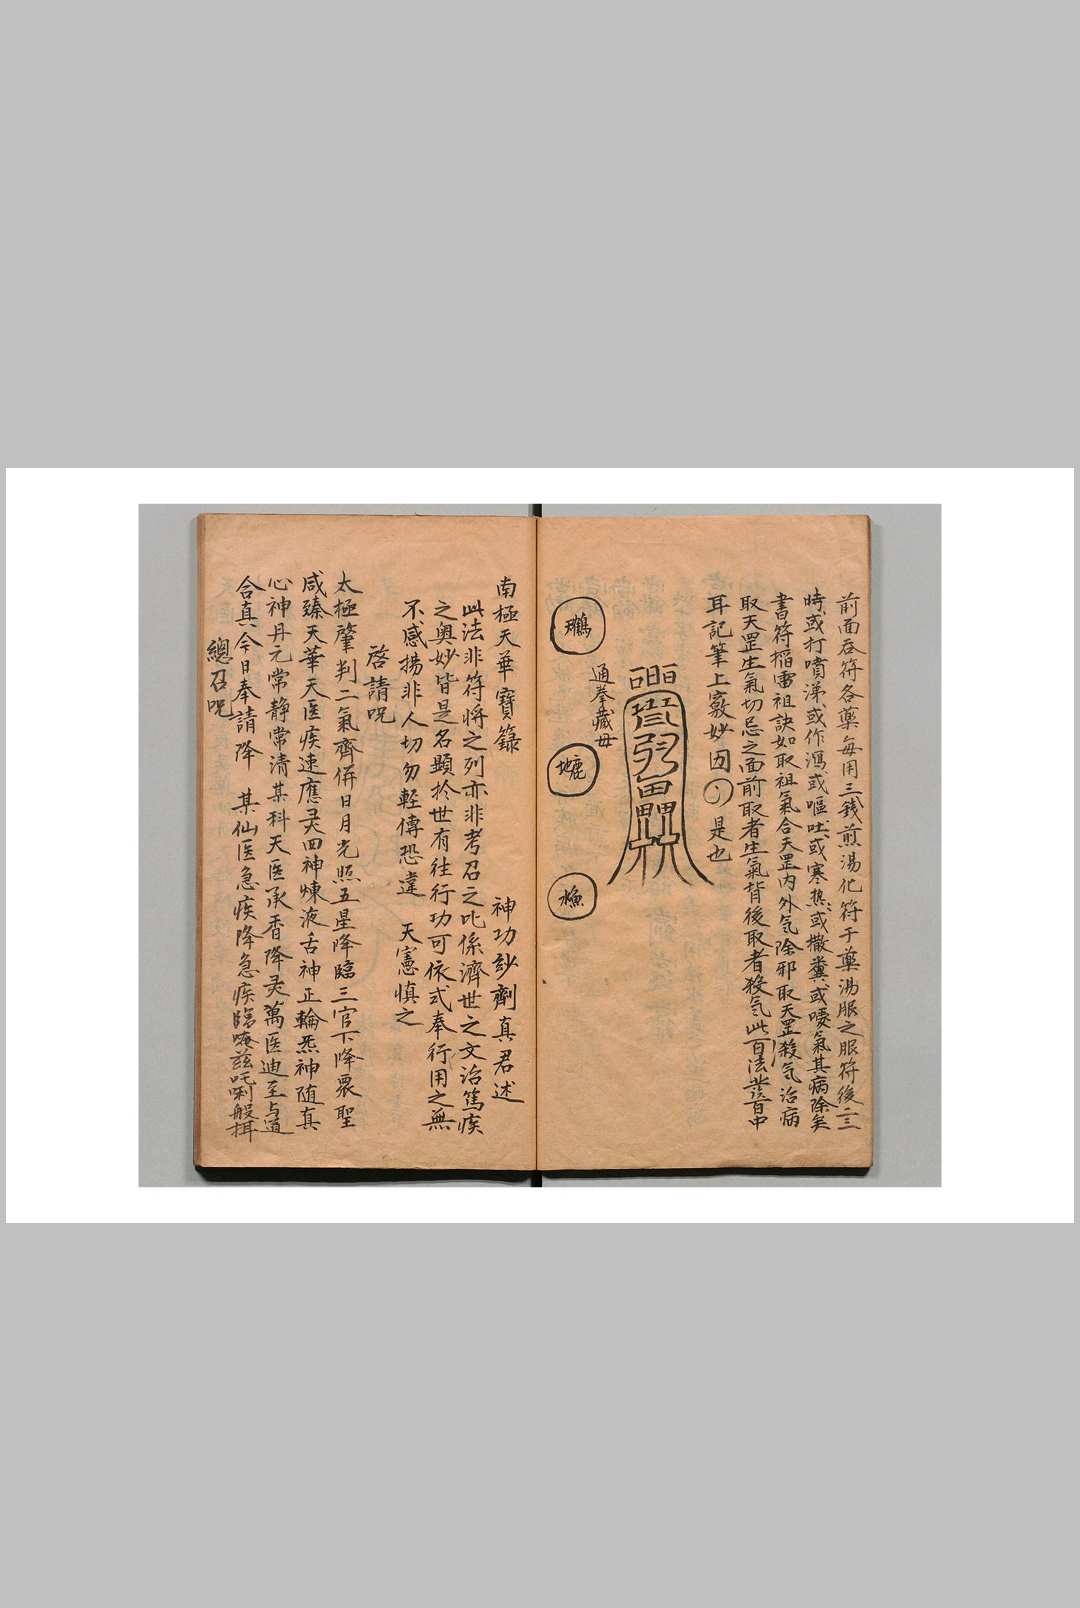 前面吞符各藥每用三錢煎湯化符于藥湯服之服符後二三
時或打噴涕或作瀉或嘔吐或寒热或撒糞或噯氣其病除矣
書符揊雷祖訣如取祖氣合天罡内外気除邪取天罡殺気治病
取天罡生氣切忌之面前取者生氣背後取者殺気此百法百中
耳記筆上竅妙因 是也
通拳藏毋
南極天華寶籙
神功妙劑真君述
此法非符將之列亦非考召之叱係濟世之文治篤疾
之奥妙皆是名顯於世有往行功可依式奉行用之無
不感揚非人切勿輕傳恐違 天憲慎之
啓請咒
太極肇判二氣齊併日月光照五星降臨三官下降眾聖
咸臻天華天医疾速應灵四神煉液舌神正輪炁神随真
心神丹元常静常清某科天医承香降灵萬医迪至与道
合真今日奉請降 某仙医急疾降急疾臨唵兹吒唎般揖
總召咒